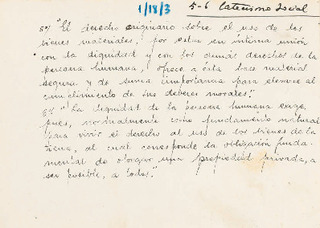 1/18/3
5-6 Catecismo Social
5º) "El derecho originario sobre el uso de los
bienes materiales, por estar en íntima unión
con la dignidad y con los demás derechos de la
persona humana, ofrece a ésta base material
segura y de suma importancia para elevarse al
cumplimiento de sus deberes morales".
6º "La dignidad de la persona humana exige,
pues, normalmente como fundamento natural
para vivir el derecho al uso de los bienes de la
tierra, al cual corresponde la obligación funda-
mental de otorgar una propiedad privada, a
ser posible, a todos."